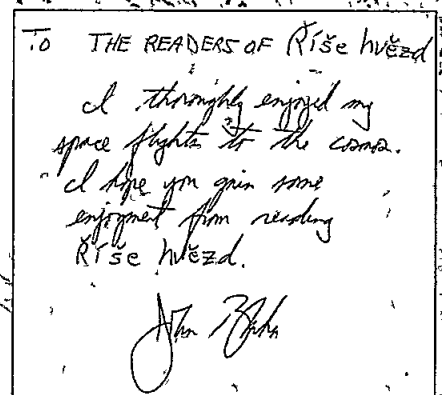 To THE READERS OF Říše hvězd
I thoroughly enjoyed my
space flights to the cosmos.
I hope you gain some
enjoyment from reading
Říše hvězd.
John Blaha